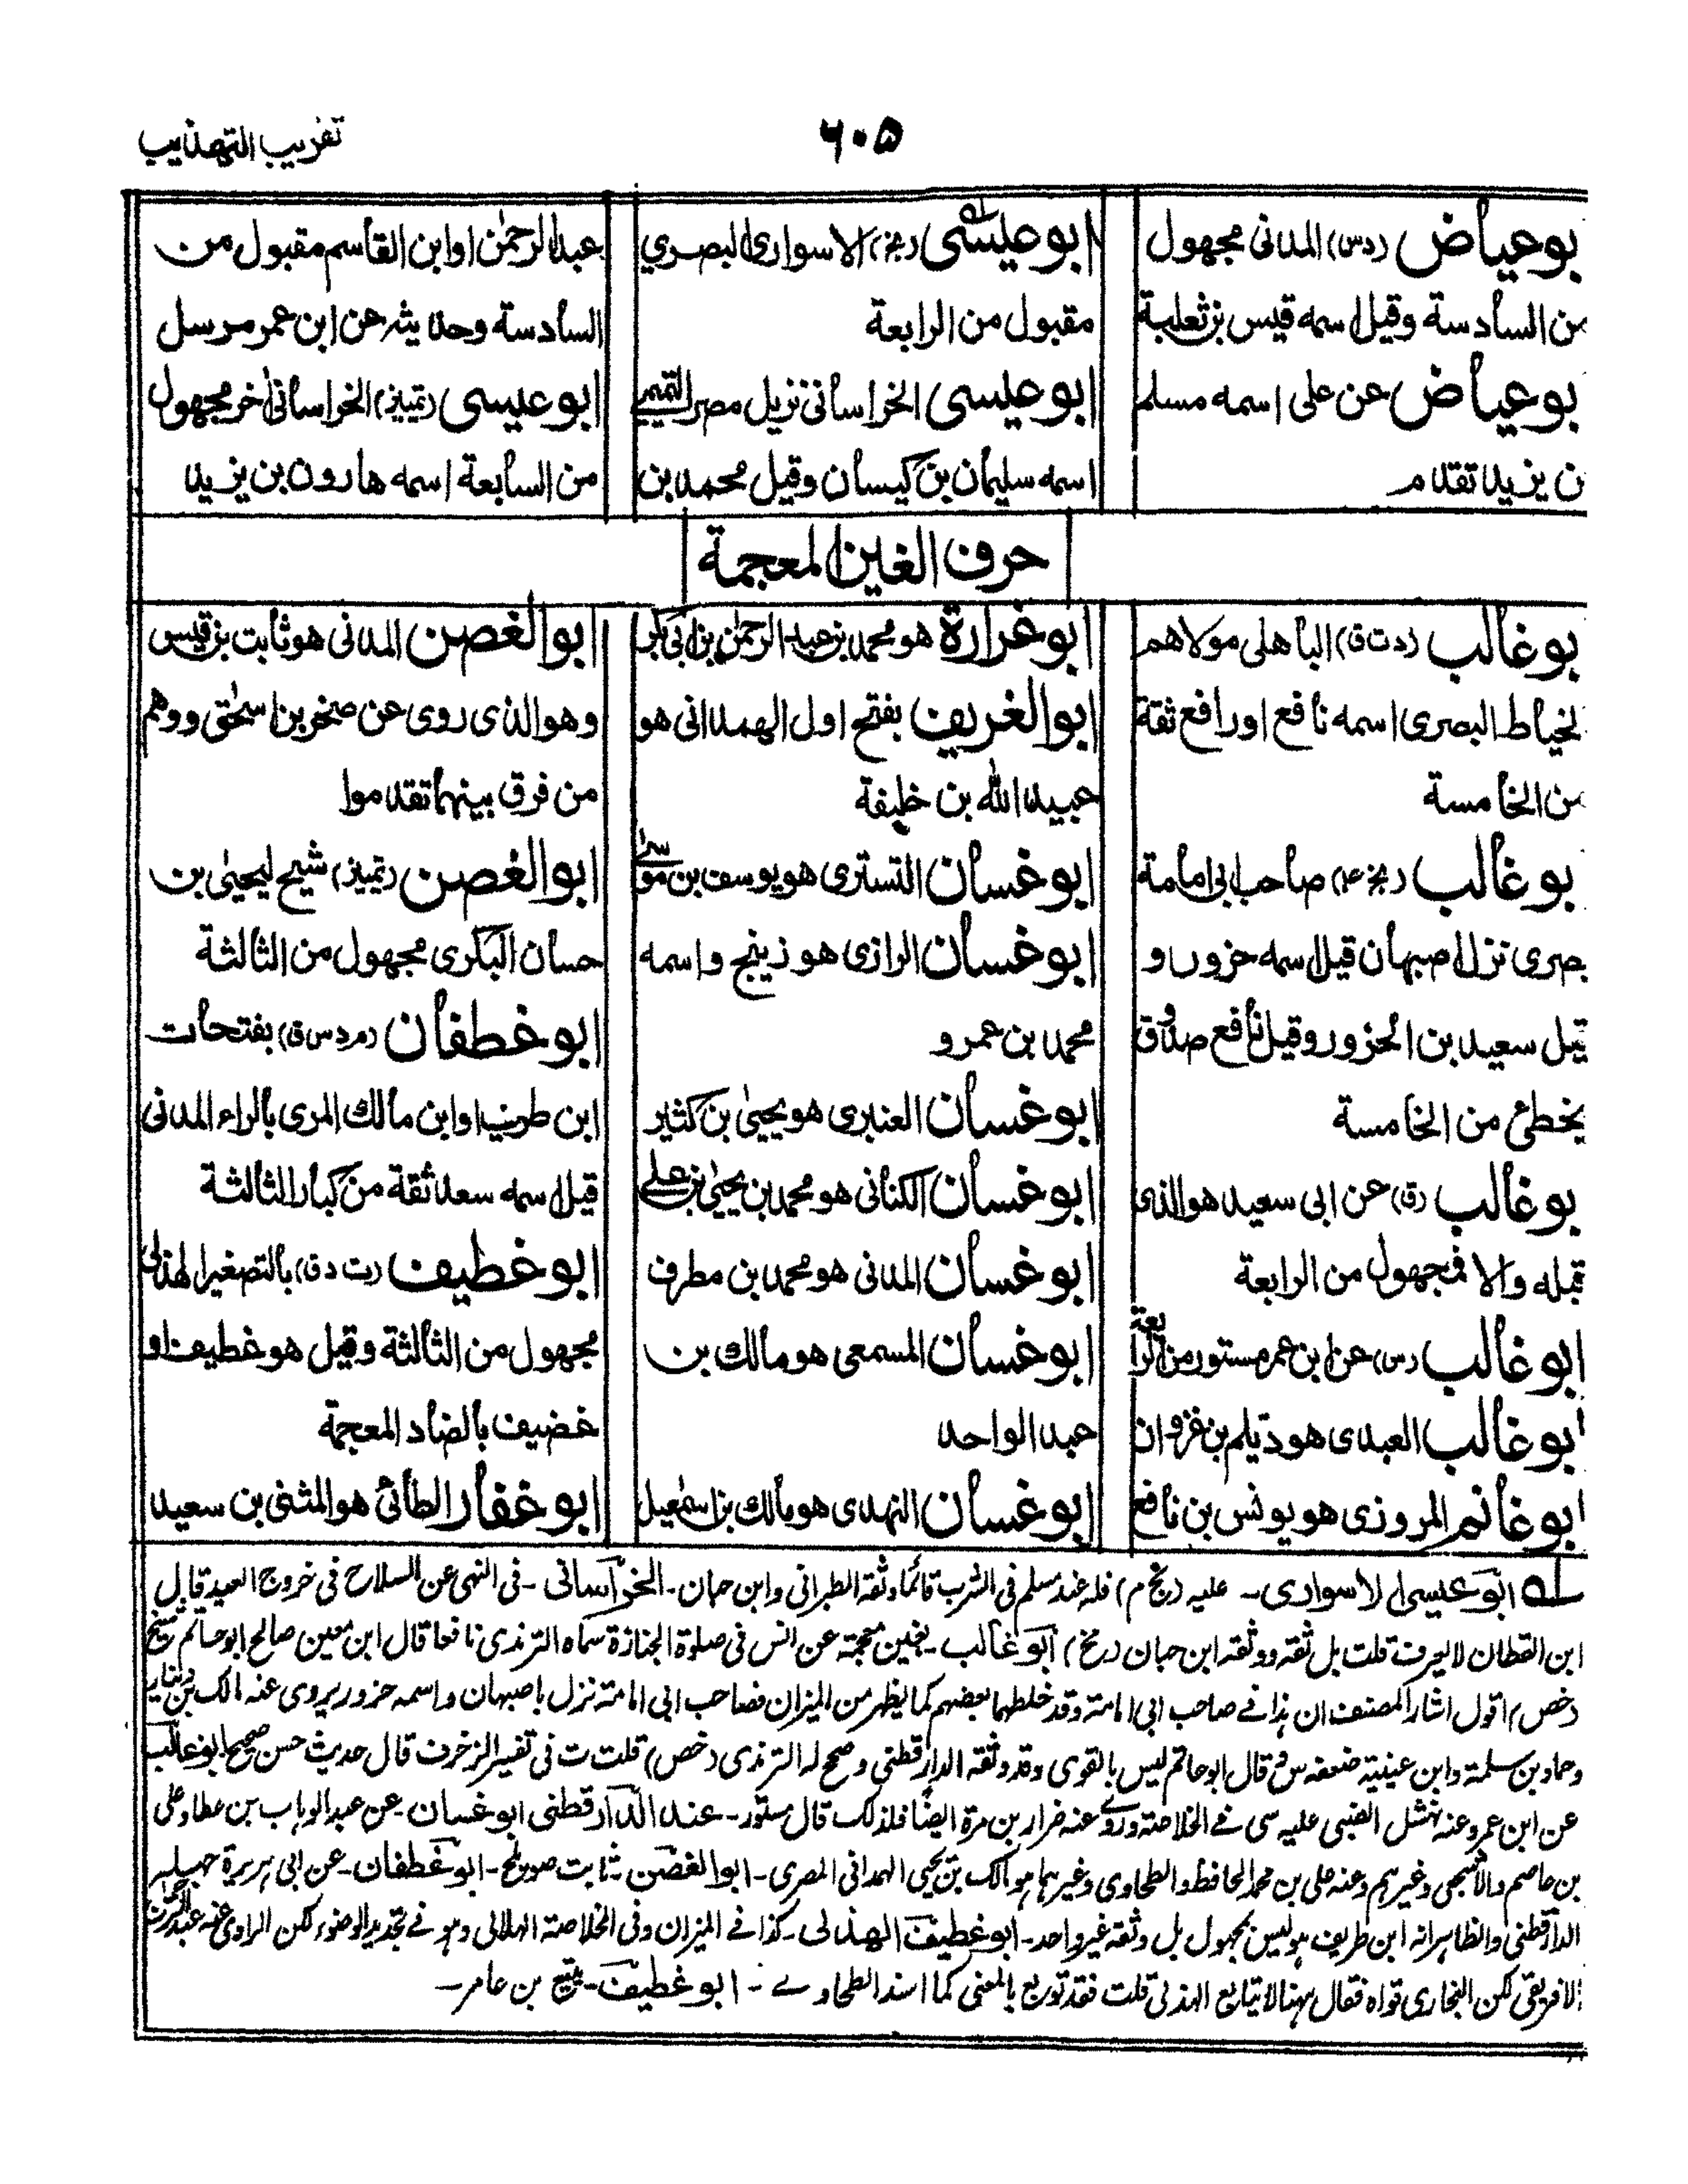 تقريب التهذيب
٦٠٥
بوعياض (دس) المدنى مجهول
من السادسة وقيل اسمه قيس بن ثعلبة
بوعياض عن على اسمه مسلم
ن يزيد تقدم
ابوعيسى (بخ) الاسوارى البصري
مقبول من الرابعة
ابوعيسى الخراسانى نزيل مصر التميمى
اسمه سليمان بن كيسان وقيل محمد بن
عبدالرحمن او ابن القاسم مقبول من
السادسة وحديثه عن ابن عمر مرسل
ابوعيسى (تمييز) الخراسانى اخر مجهول
من السابعة اسمه هارون بن يزيد
حرف الغين المعجمة
بوغالب (دت ق) الباهلى مولاهم
لخياط البصرى اسمه نافع او رافع ثقة
من الخامسة
بوغالب (بخ عم) صاحب ابى امامة
بصرى نزل اصبهان قيل اسمه حزور و
قيل سعيد بن الحزور وقيل نافع صدوق
يخطئ من الخامسة
بوغالب (ق) عن ابى سعيد هو الذى
قبله والا فمجهول من الرابعة
ابوغالب (س) عن ابن عمر مستور من الرابعة
ابوغالب العبدى هو ديلم بن غزوان
ابوغانم المروزى هو يونس بن نافع
ابوغرارة هو محمد بن عبد الرحمن بن ابى بكر
ابوالغريف بفتح اوله الهمدانى هو
عبيدالله بن خليفة
ابوغسان التسترى هو يوسف بن موسى
ابوغسان الرازى هو زنيج واسمه
محمد بن عمرو
ابوغسان العنبرى هو يحيى بن كثير
ابوغسان الكنانى هو محمد بن يحيى بن على
ابوغسان المدنى هو محمد بن مطرف
ابوغسان المسمعى هو مالك بن
عبدالواحد
ابوغسان النهدى هو مالك بن اسمعيل
ابوالغصن المدنى هو ثابت بن قيس
وهو الذى روى عن صخر بن اسحق ووهم
من فرق بينهما تقدموا
ابوالغصن (تمييز) شيخ ليحيى بن
حسان البكرى مجهول من الثالثة
ابوغطفان (م د س ق) بفتحات
ابن طريف او ابن مالك المرى بالراء المدنى
قيل اسمه سعد ثقة من كبار الثالثة
ابوغطيف (ت د ق) بالتصغير الهذلى
مجهول من الثالثة وقيل هو غطيف او
غضيف بالضاد المعجمة
ابوغفار الطائى هو المثنى بن سعيد
له ابوعيسى الاسوارى- عليه (بخ م) فله عند مسلم فى الشرب قائما وثقه الطبرانى وابن حبان- الخراسانى- فى النهى عن السلاح فى خروج العيد قال
ابن القطان لا يعرف قلت بل ثقه ووثقه ابن حبان (بخ) ابوغالب- بغين معجمة عن انس فى صلوة الجنازة سماه الترمذى نافعا قال ابن معين صالح ابوحاتم شيخ
(خص) اقول اشار المصنف ان هذا فى صاحب ابى امامة وقد خلطهما بعضهم كما يظهر من الميزان فصاحب ابى امامة نزل باصبهان واسمه حزور يروى عنه مالك بن دينار
وحماد بن سلمة وابن عيينة ضعفه س قال ابوحاتم ليس بالقوى وقد وثقه الدارقطنى وصحح له الترمذى (خص) قلت ت فى تفسير الزخرف قال حديث حسن صحيح ابوغالب
عن ابن عمر وعنه نهشل الضبى عليه سى فى الخلاصة وروى عنه ضرار بن مرة ايضا فلذلك قال مستور- عند الدارقطنى ابوغسان- عن عبدالوهاب بن عطا وعلى
بن عاصم والاشجعى وغيرهم وعنه على بن محمد الحافظ والطحاوى وغيرهما هو مالك بن يحيى الهمدانى المصرى- ابوالغصن- ثابت صويلح- ابوغطفان- عن ابى هريرة
الدارقطنى والظاهر انه ابن طريف هو ليس بمجهول بل وثقه غير واحد- ابوغطيف الهذلى- كذا فى الميزان وفى الخلاصة الهلالى وهو فى تجديد الوضوء لكن الراوى عنه عبدالرحمن
الافريقى لكن البخارى قواه فقال ههنا لا يتابع الهذلى قلت فقد توبع بالمعنى كما اسند الطحاوى- ابوغطيف- تبيع بن عامر-